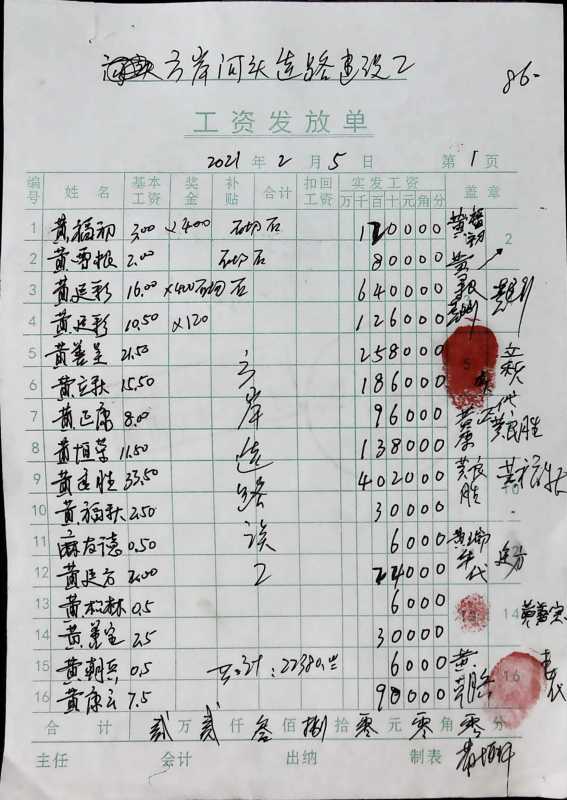 方岸河头造路建设工
86-
工资发放单
2021年2月5日 第1页
编号 姓名 基本工资 奖金 补贴 合计 扣回工资 实发工资 盖章
万千百十元角分
1 黄福初 3.00 ×400 石砌石 120000 黄福初
2 黄寿根 2.00 石砌石 80000 黄
3 黄延彩 16.00 ×400 石砌石 640000
4 黄延彩 10.50 ×120 126000
5 黄善呈 21.50 258000
6 黄立秋 15.50 186000 立秋
7 黄正康 8.00 96000 黄正康
8 黄恒草 11.50 138000 黄民胜
9 黄民胜 33.50 402000 黄民胜
10 黄福秋 2.50 30000
11 麻友德 0.50 6000
12 黄延方 2.00 24000 延方
13 黄松林 0.5 6000
14 黄善宝 2.5 30000 黄善宝
15 黄朝兵 0.5 共计：22380.00 6000 黄
16 黄康云 7.5 90000
方岸造路误工
合计 贰万贰仟叁佰捌拾零元零角零分
主任 会计 出纳 制表